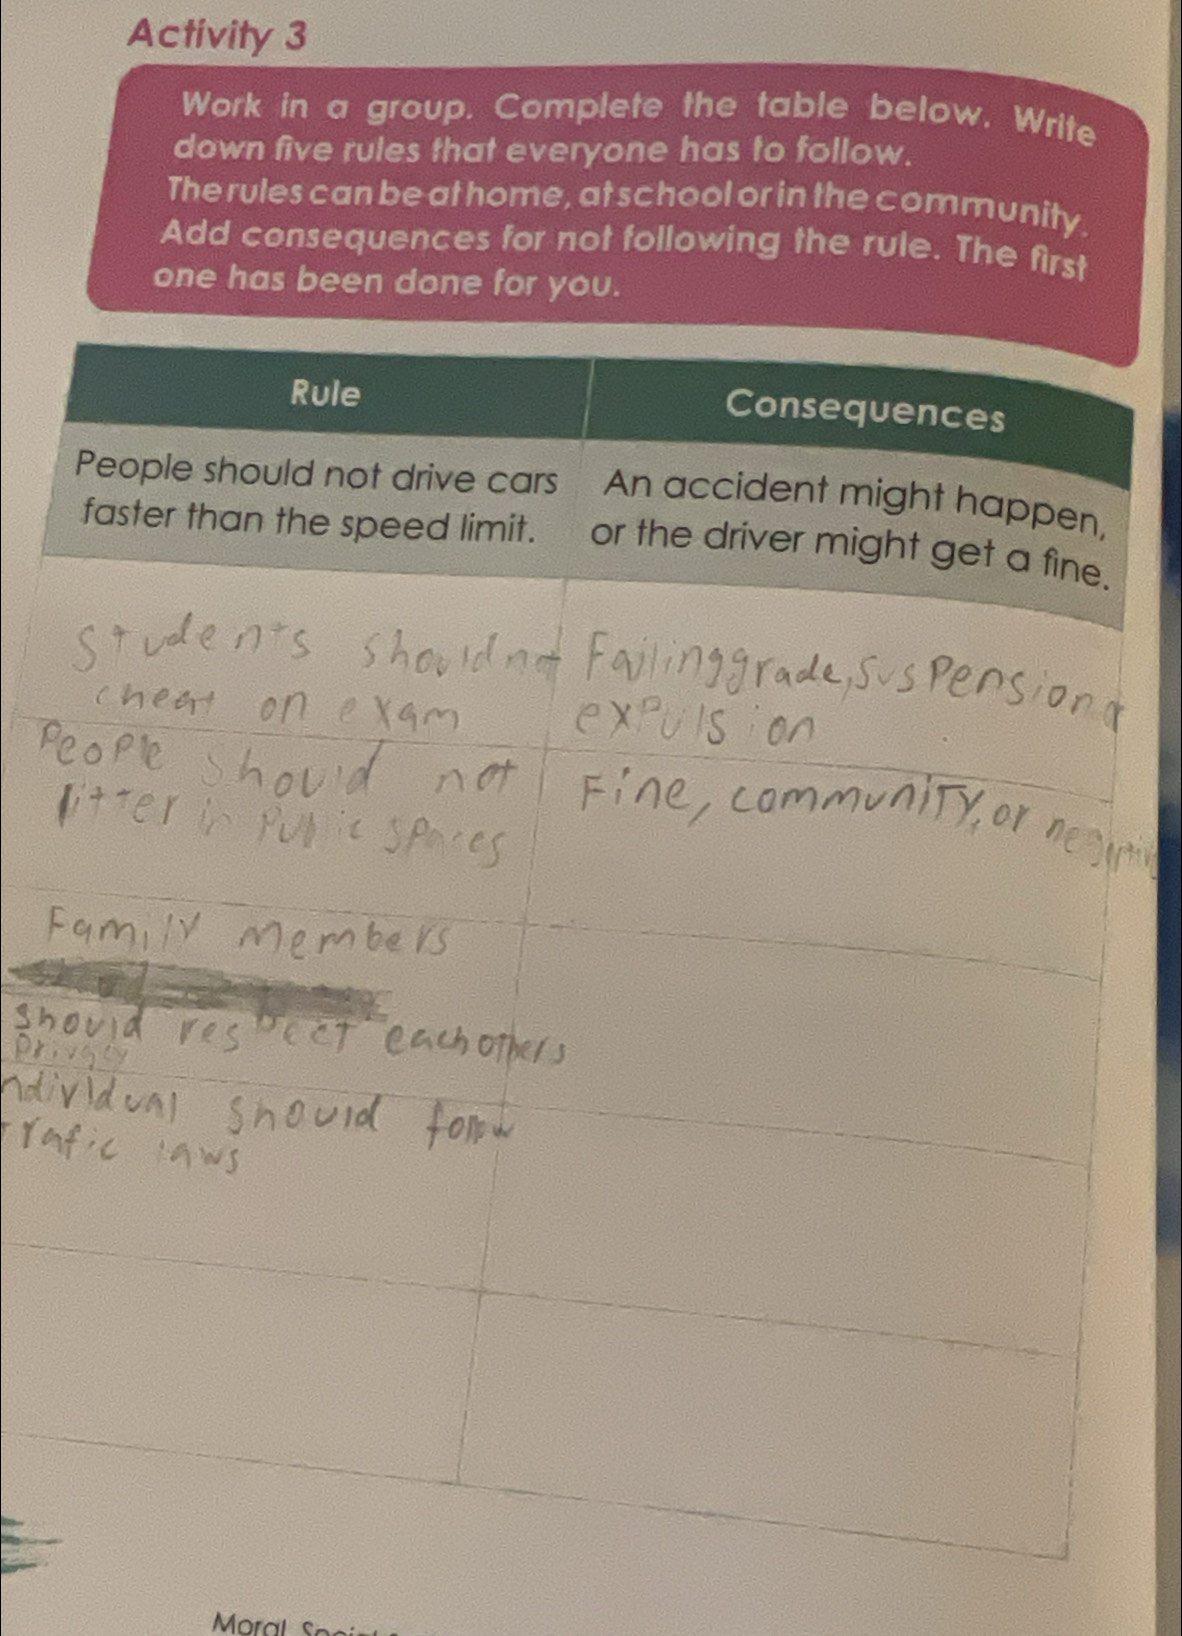 Activity 3
Work in a group. Complete the table below. Write
down five rules that everyone has to follow.
The rules can be at home, at school or in the community.
Add consequences for not following the rule. The first
one has been done for you.
Rule
Consequences
People should not drive cars
faster than the speed limit.
An accident might happen,
or the driver might get a fine.
Students should not
cheat on exam
Failing grade, suspension
expulsion
People should not
litter in Public spaces
Fine, community, or
Family members
should respect each others
privacy
ndividual should follow
rafic laws
Moral